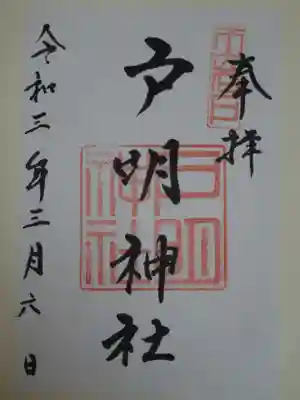 奉拝
戸明神社
戸明神社
令和三年三月六日